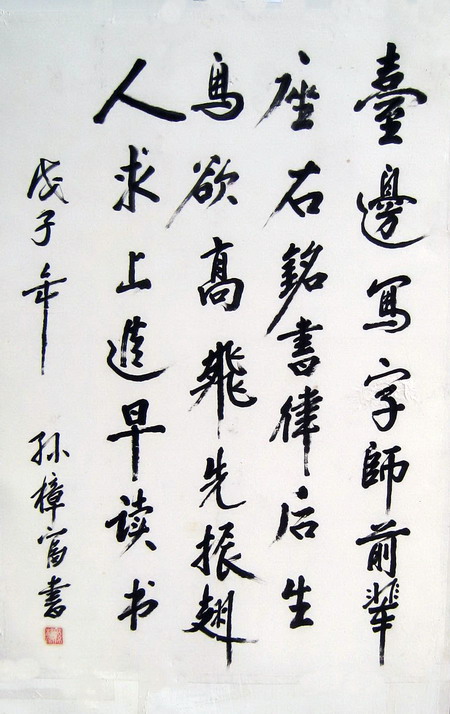 臺邊寫字師前輩
座右銘書律后生
鳥欲高飛先振翅
人求上進早读书
戊子年 孙樟富書